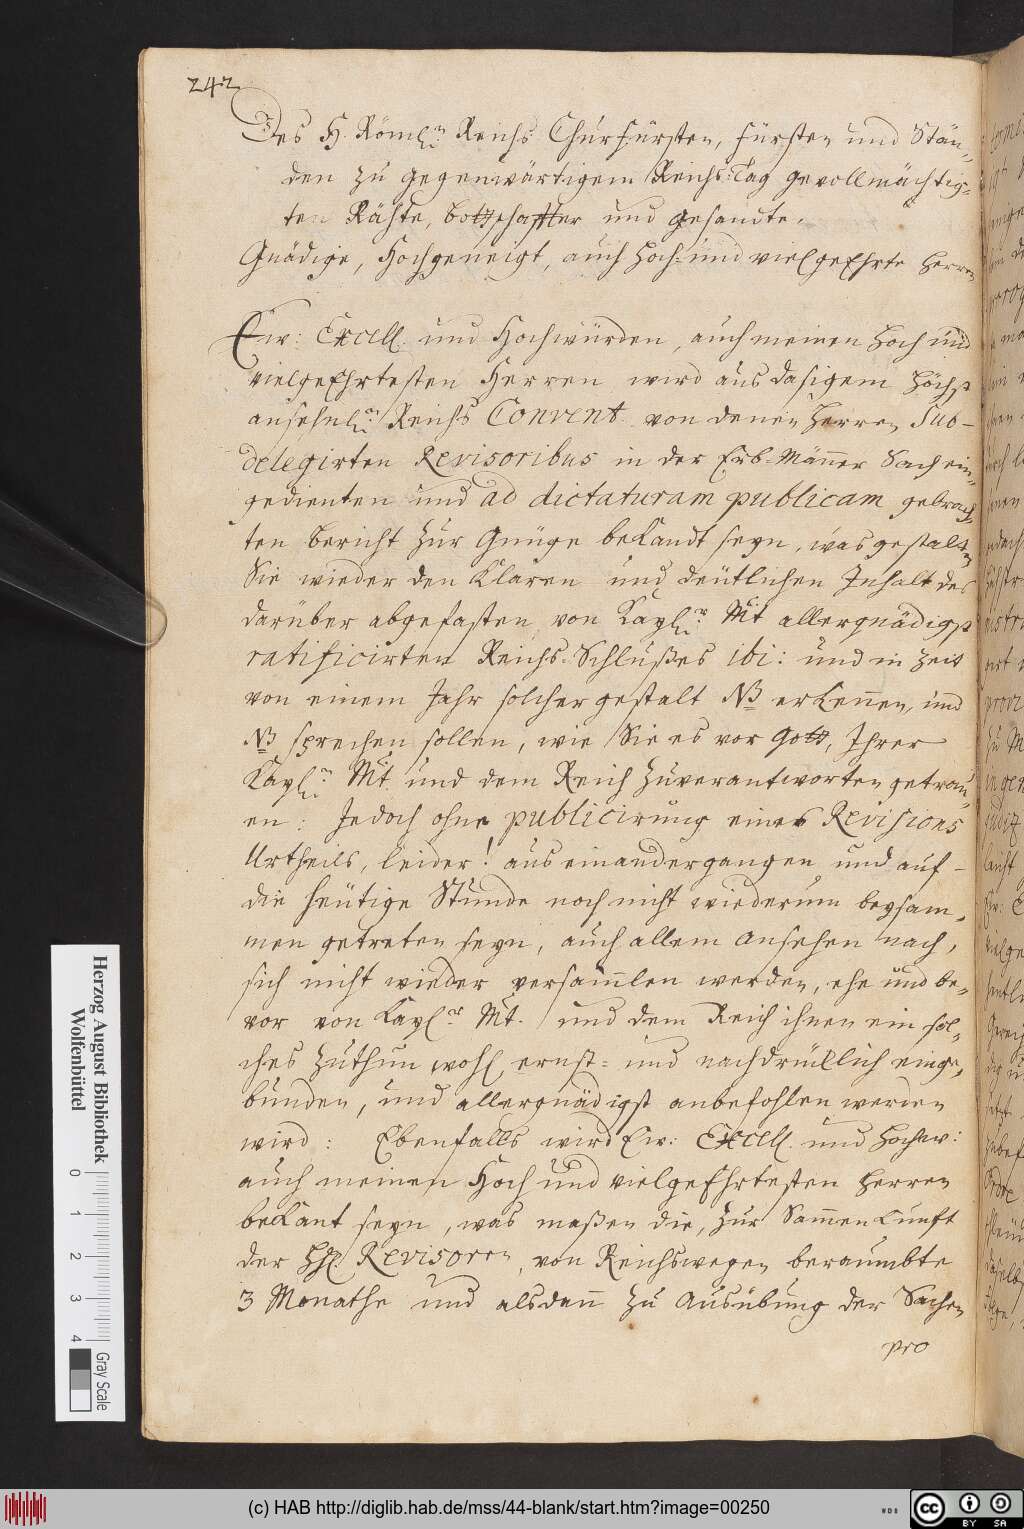 242
Des H. Römln Reichs Churfürsten, Fürsten und Stän-
den zu gegenwärtigem Reichs-Tag gevollmächtig-
ten Rähte, bottschaffter und gesandte.
Gnädige, Hochgeneigt, auch Hoch- und vielgeEhrte Herren
Ew: Excell. und Hochwürden, auch meinen Hoch und
vielgeEhrtesten Herren wird aus dasigem höchst
ansehnln Reichs Convent von denen Herren Sub-
delegirten Revisoribus in der Erb-Mäner Sach ein-
gedienten und ad dictaturam publicam gebrach-
ten bericht zur Gnüge bekandt seyn, was gestalten
Sie wieder den Klaren und deutlichen Inhalt des
darüber abgefasten, von Kaylr Mt allergnädigst
ratificirten Reichs-Schlußes ibi: und in Zeit
von einem Jahr solcher gestalt NB erkenen, und
NB sprechen sollen, wie Sie es vor Gott, Ihrer
Kayln Mt. und dem Reich zuverantworten getrau-
en: Jedoch ohne publicirung eines Revisions
Urtheils, leider! aus einandergangen und auf
die heutige Stunde noch nicht wiederum beysam-
men getreten seyn, auch allem ansehen nach,
sich nicht wieder versamlen werden, ehe und be-
vor von Kaylr Mt. und dem Reich ihnen ein sol-
ches zuthun wohl ernst- und nachdrücklich einge-
bunden, und allergnädigst anbefohlen werden
wird: Ebenfalls wird Ew: Excell. und Hochw:
auch meinen Hoch und vielgeEhrtesten Herren
bekant seyn, was maßen die, zur Samenkunft
der HH. Revisoren, von Reichswegen beraumbte
3 Monathe und alsdan zu Ausübung der Sachen
pro
Herzog August Bibliothek
Wolfenbüttel
0 1 2 3 4
Gray Scale
(c) HAB http://diglib.hab.de/mss/44-blank/start.htm?image=00250
WDB
cc BY SA